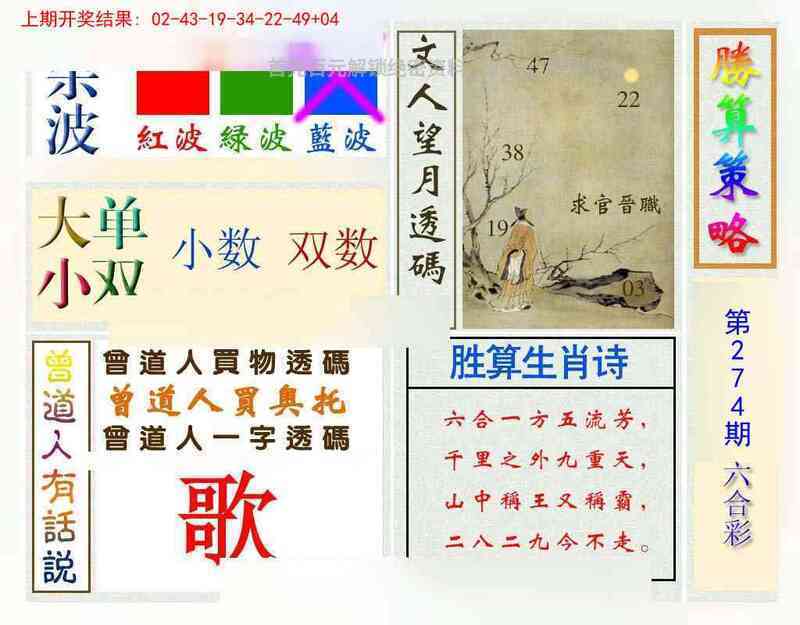 上期开奖结果: 02-43-19-34-22-49+04
首充百元解锁绝密资料
波
紅波 緑波 藍波
大单
小双
小数 双数
文人望月透碼
47
22
38
求官晉職
19
03
勝算策略
第274期六合彩
曾道人有話説
曾道人買物透碼
曾道人買奥托
曾道人一字透碼
歌
胜算生肖诗
六合一方五流芳,
千里之外九重天,
山中稱王又稱霸,
二八二九今不走。